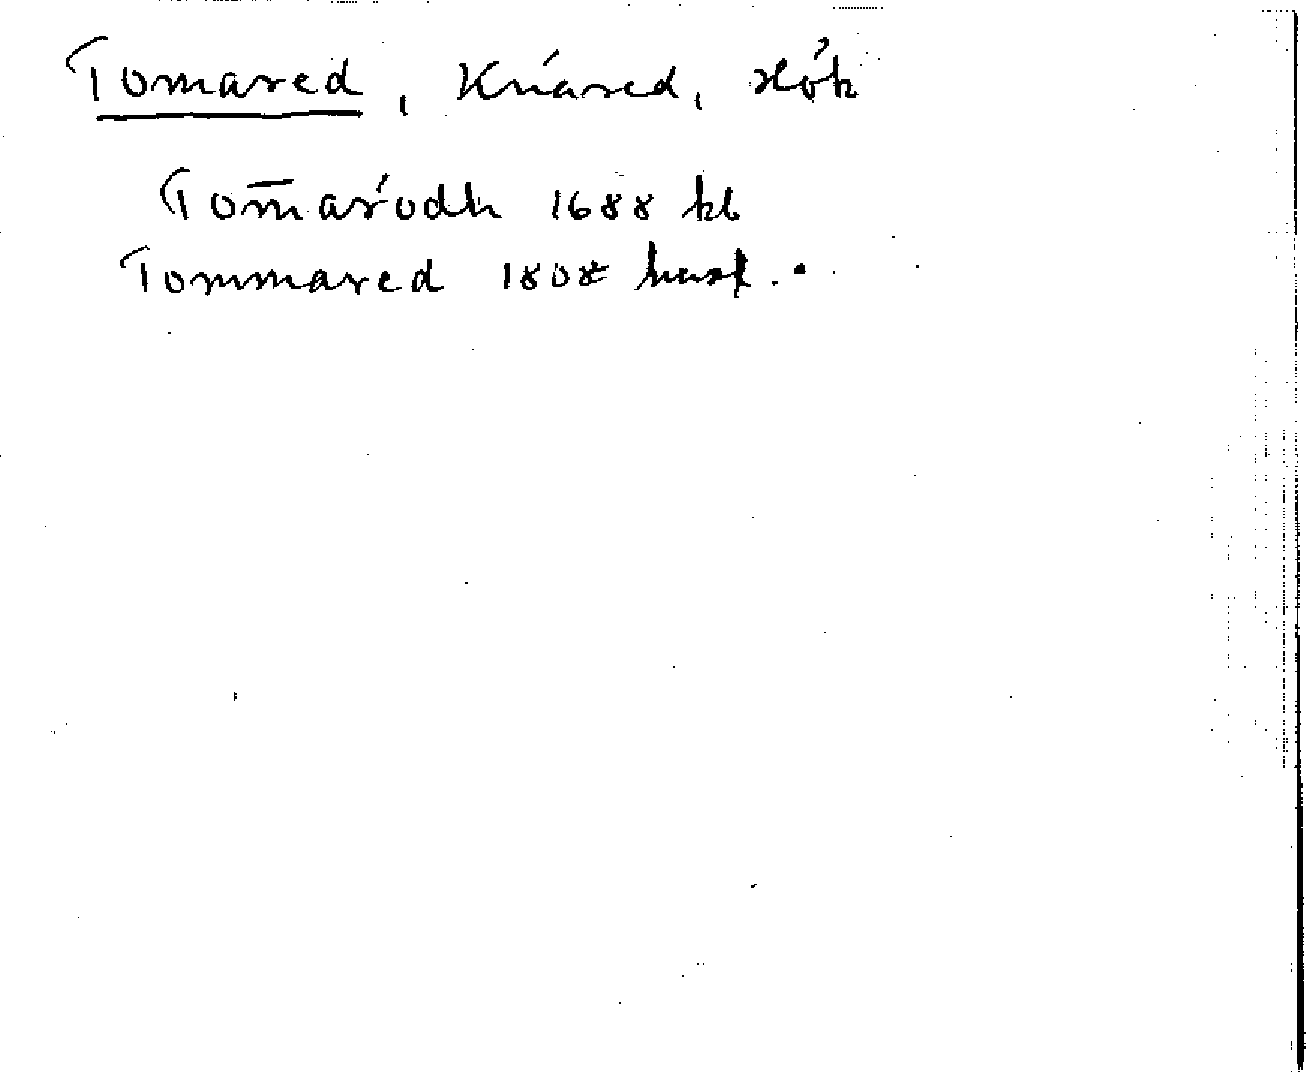 Tomared, Knäred, Hök
Tom̄aródh 1688 kb
Tommared 1808 husf.